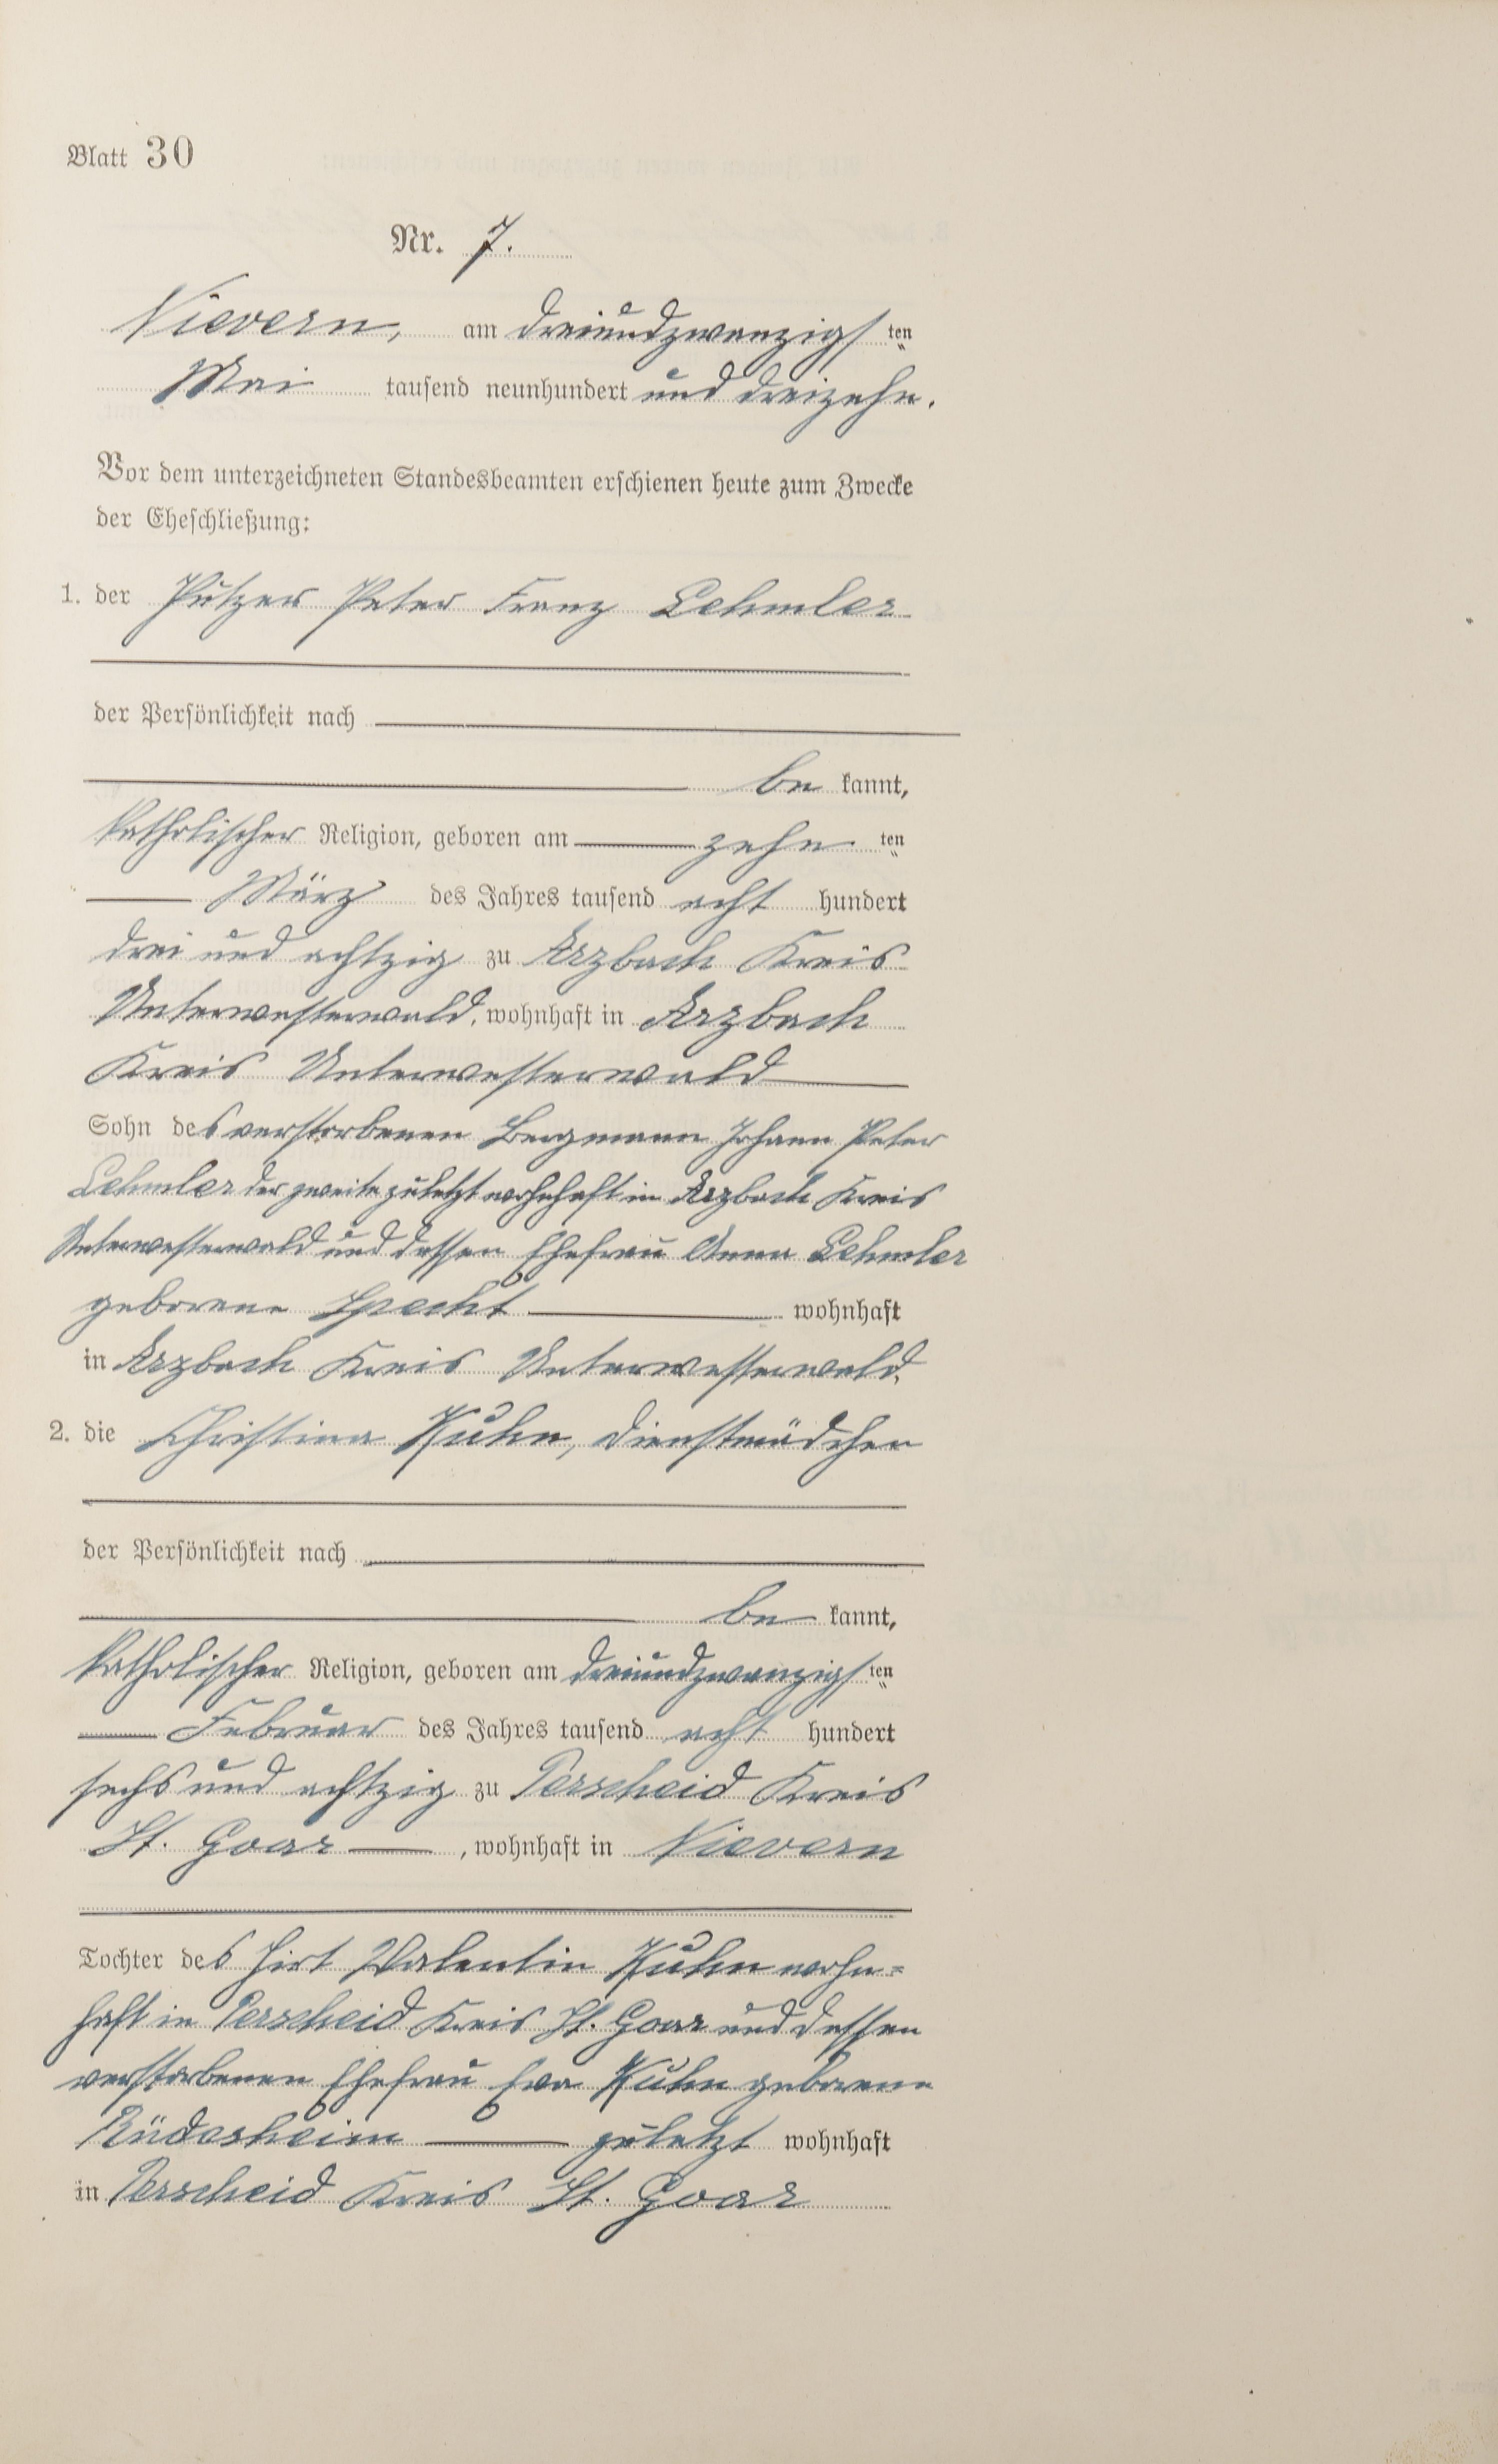 Blatt 30
Nr. 7.
Nievern, am dreiundzwanzigsten
Mai tausend neunhundert und dreizehn.
Vor dem unterzeichneten Standesbeamten erschienen heute zum Zwecke
der Eheschließung:
1. der Putzer Peter Franz Lehmler
der Persönlichkeit nach
be kannt,
katholischer Religion, geboren am zehn ten
März des Jahres tausend acht hundert
drei und achtzig zu Arzbach Kreis
Unterwesterwald, wohnhaft in Arzbach
Kreis Unterwesterwald
Sohn des verstorbenen Bergmann Johann Peter
Lehmler der zweite zuletzt wohnhaft in Arzbach Kreis
Unterwesterwald und dessen Ehefrau Anna Lehmler
geborene Specht wohnhaft
in Arzbach Kreis Unterwesterwald.
2. die Christina Kuhn, Dienstmädchen
der Persönlichkeit nach
be kannt,
katholischer Religion, geboren am dreiundzwanzigsten
Februar des Jahres tausend acht hundert
sechs und achtzig zu Perscheid Kreis
St. Goar, wohnhaft in Nievern
Tochter des Hirt Valentin Kuhn wohn=
haft in Perscheid Kreis St. Goar und dessen
verstorbenen Ehefrau Eva Kuhn geborene
Rüdesheim zuletzt wohnhaft
in Perscheid Kreis St. Goar